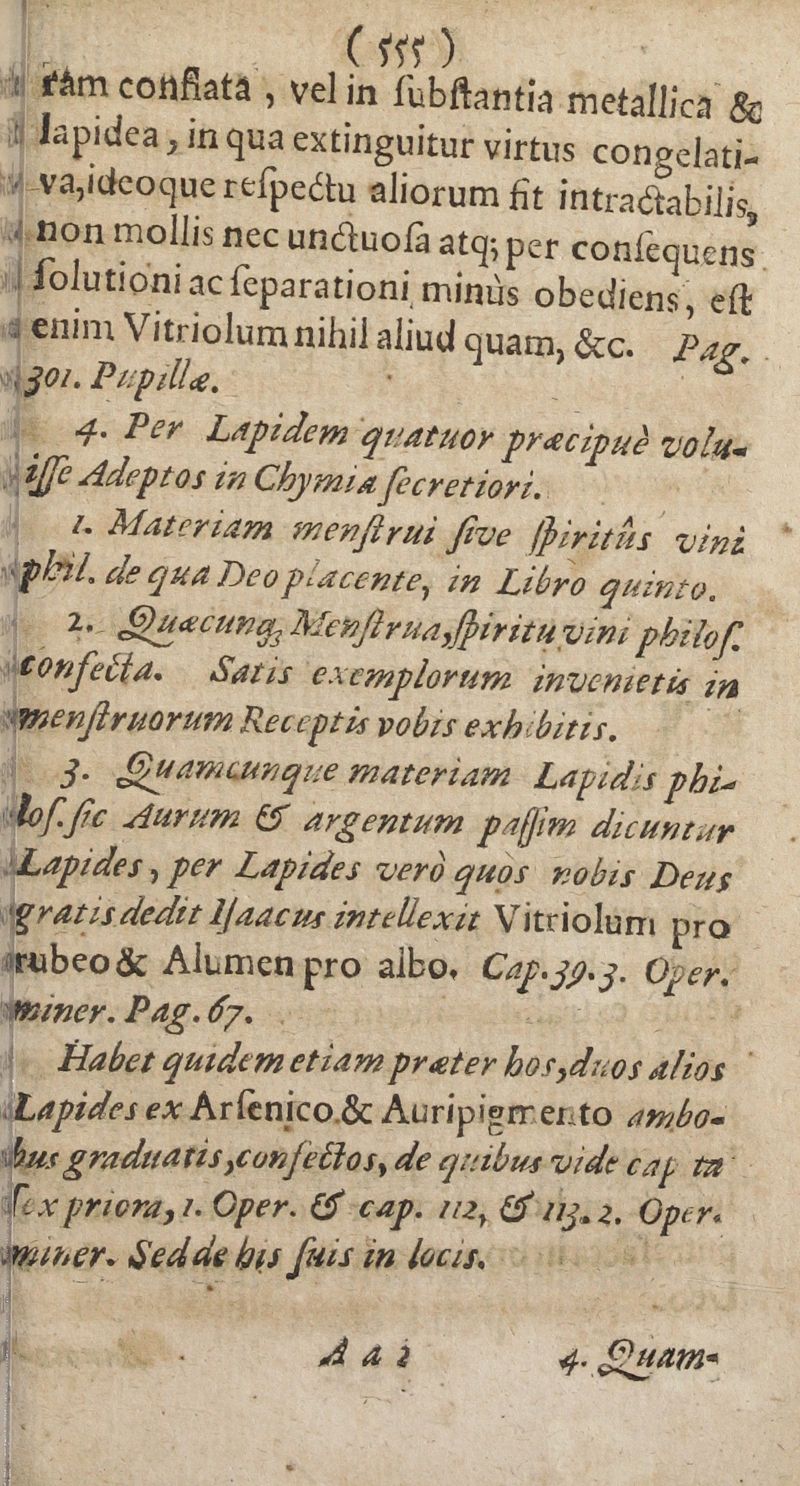 ( 555 )
ram conflata , vel in ſubſtantia metallica &
lapidea , in qua extinguitur virtus congelati-
va,ideoque reſpectu aliorum fit intractabilis,
non mollis nec unctuoſa atq; per conſequens
ſolutioni ac ſeparationi minùs obediens, eſt
enim Vitriolum nihil aliud quam, &c. Pag.
301. Pupillæ.
4. Per Lapidem quatuor præcipuè volu-
iſſe Adeptos in Chymia ſecretiori.
1. Materiam menſtrui ſive ſpiritûs vini
phil. de qua Deo placente, in Libro quinto.
2. Quæcunq; Menſtrua,ſpiritu vini philoſ.
confecta. Satis exemplorum invenietis in
menſtruorum Receptis vobis exhibitis.
3. Quamcunque materiam Lapidis phi-
loſ. ſic Aurum & argentum paſſim dicuntur
Lapides, per Lapides verò quos nobis Deus
gratis dedit Iſaacus intellexit Vitriolum pro
rubeo & Alumen pro albo. Cap.39.3. Oper.
miner. Pag. 67.
Habet quidem etiam præter hos,duos alios
Lapides ex Arſenico & Auripigmento ambo-
bus graduatis,confectos, de quibus vide cap
ſex priora, 1. Oper. & cap. 112, & 113. 2. Oper.
miner. Sed de his ſuis in locis.
A a 2 4. Quam-